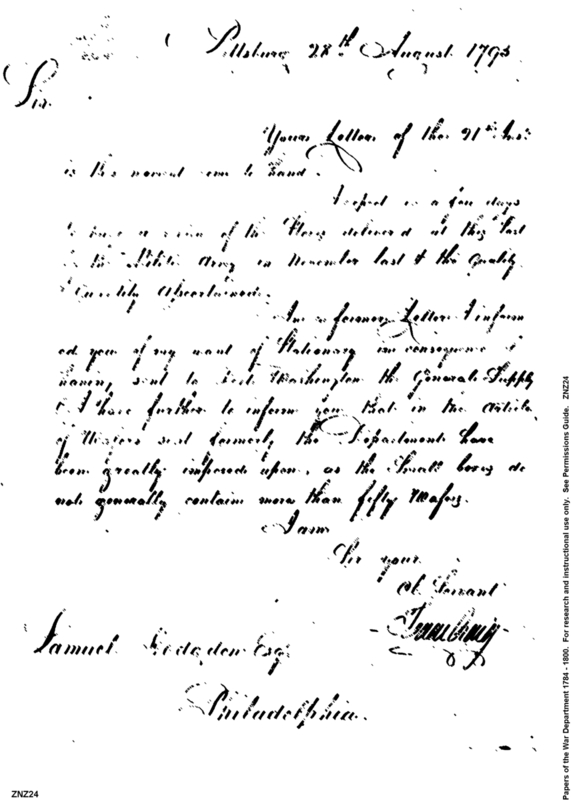 Pittsburg 28th August 1793
Sir
Your Letter of the 21st Inst
is this moment come to hand.
I expect in a few days
to have a of the Stores delivered at this Post
to the Militia Army in November last & the Quality
& Quantity Ascertained.
In a former Letter I inform
ed you of my want of Stationary in consequence of
having sent to Fort Washington the Generals Supply
I have further to inform you that in the Article
of Wafers sent formerly the Department have
been greatly imposed upon, as the Small boxes do
not generally contain more than fifty Wafers.
I am
Sir your
Ob. Servant
Isaac Craig
Samuel Hodgdon Esqr.
Philadelphia.
ZNZ24
Papers of the War Department 1784 - 1800. For research and instructional use only. See Permissions Guide. ZNZ24